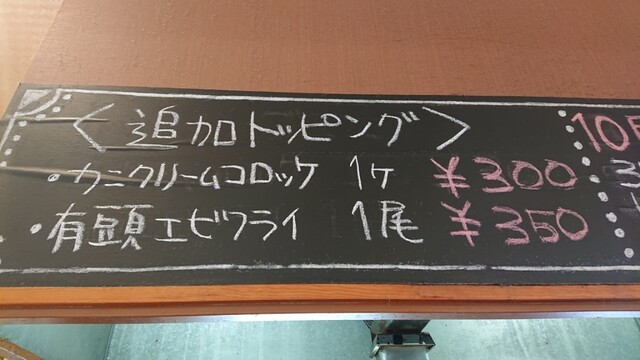 〈追加トッピング〉
・カニクリームコロッケ 1ヶ ¥300
・有頭エビフライ 1尾 ¥350
10月